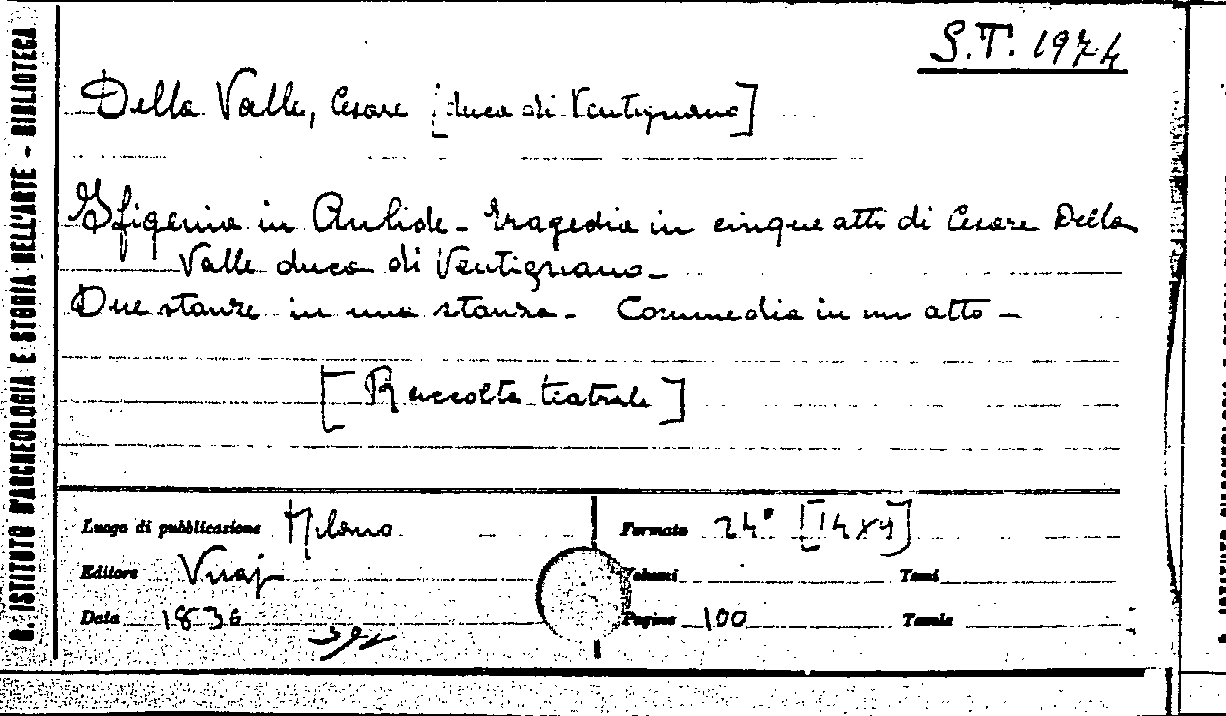 S.T. 1974
Della Valle, Cesare [duca di Ventignano]
Ifigenia in Aulide - tragedia in cinque atti di Cesare Della
Valle duca di Ventignano -
Due stanze in una stanza - Commedia in un atto -
[Raccolta teatrale]
Luogo di pubblicazione Milano
Formato 24° [14x9]
Editore Visaj
Volumi
Tomi
Data 1836
Pagine 100
Tavole
R. ISTITUTO D'ARCHEOLOGIA E STORIA DELL'ARTE - BIBLIOTECA